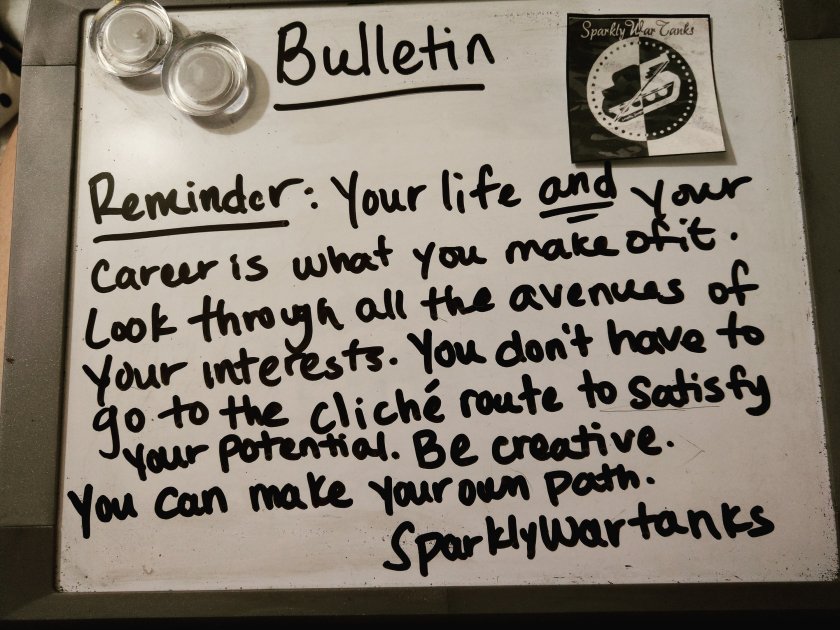 Bulletin
Sparkly War Tanks
Reminder: Your life and your
career is what you make of it.
Look through all the avenues of
your interests. You don't have to
go to the cliché route to satisfy
your potential. Be creative.
You can make your own path.
SparklyWartanks